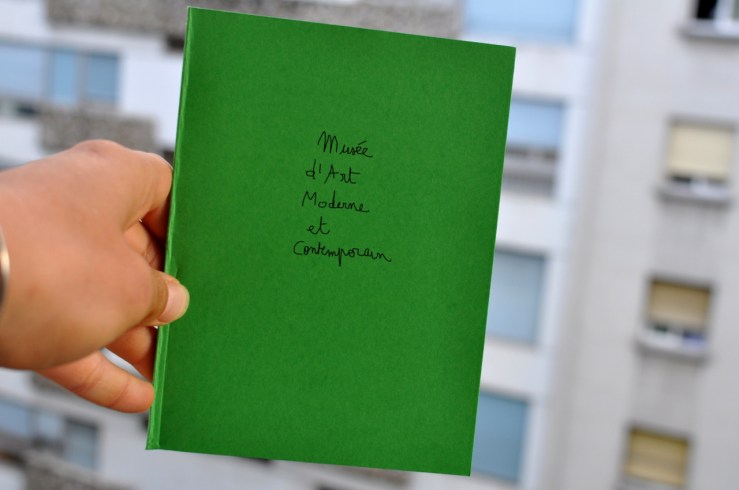 Musée
d'Art
Moderne
et
Contemporain